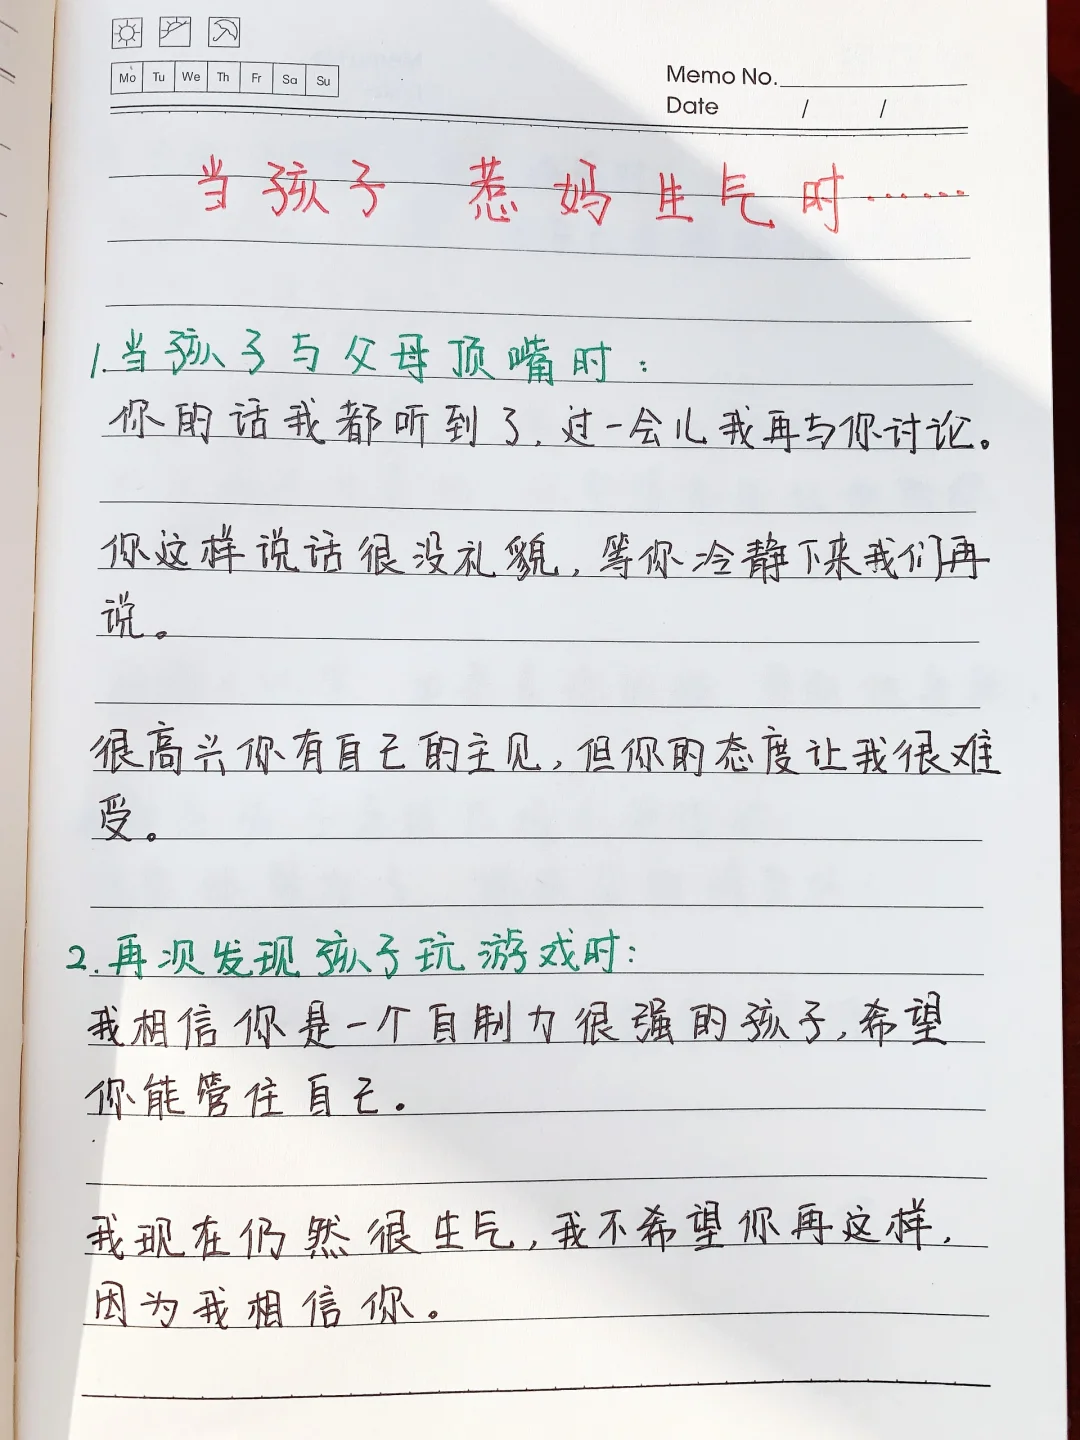 Mo Tu We Th Fr Sa Su
Memo No.
Date / /
当孩子 惹妈生气时……
1.当孩子与父母顶嘴时：
你的话我都听到了，过一会儿我再与你讨论。
你这样说话很没礼貌，等你冷静下来我们再
说。
很高兴你有自己的主见，但你的态度让我很难
受。
2.再次发现孩子玩游戏时：
我相信你是一个自制力很强的孩子，希望
你能管住自己.
我现在仍然很生气，我不希望你再这样，
因为我相信你。